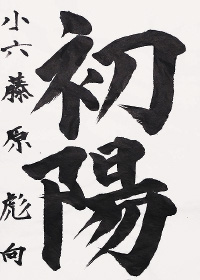 初陽
小六 藤原彪向